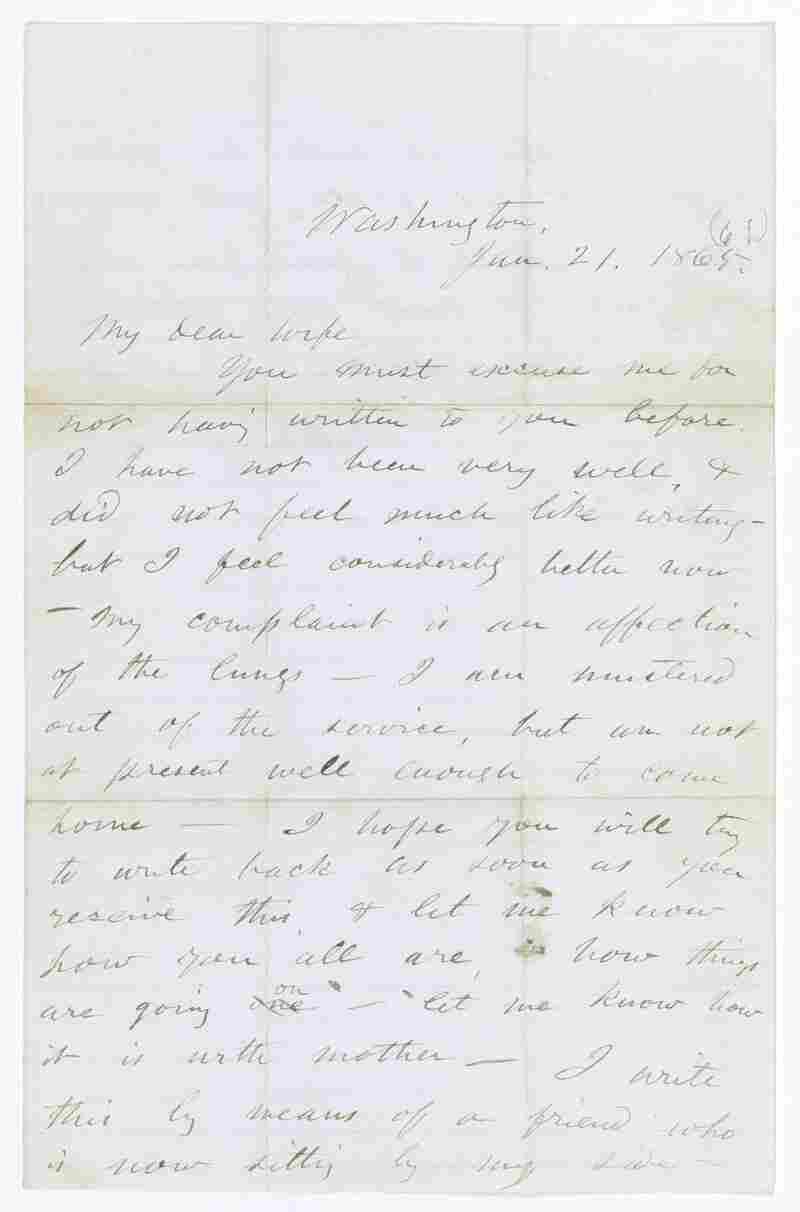 Washington,
(6
Jan. 21. 1865.
My dear wife
You must excuse me for
not havig written to you before.
I have not been very well, &
did not feel much like writing –
but I feel considerably better now
– My complaint is an affection
of the lungs – I am mustered
out of the service, but am not
at present well enough to come
home – I hope you will try
to write back as soon as you
receive this & let me know
how you all are, how things
are going on – let me know how
it is with mother – I write
this by means of a friend who
is now sittig by my side –